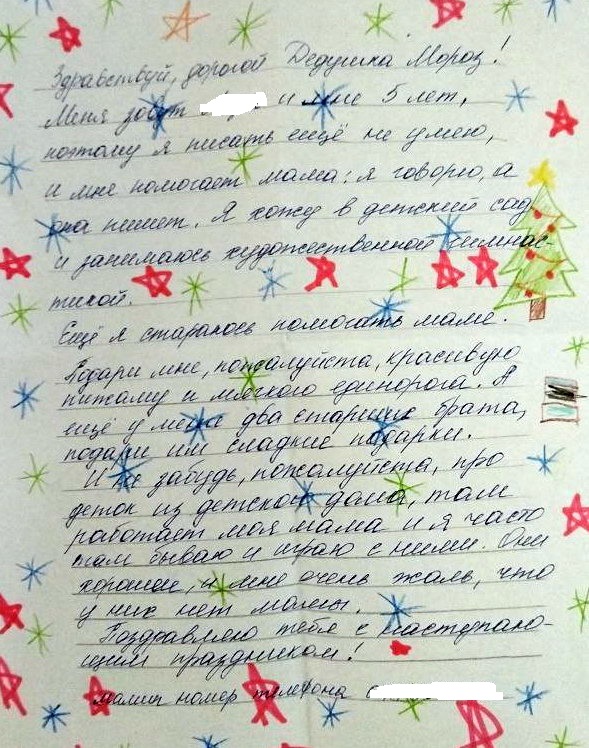 Здравствуй, дорогой Дедушка Мороз!
Меня зовут и мне 5 лет,
поэтому я писать ещё не умею,
и мне помогает мама: я говорю, а
она пишет. Я хожу в детский сад
и занимаюсь художественной гимнас-
тикой.
Ещё я стараюсь помогать маме.
Подари мне, пожалуйста, красивую
пижаму и мягкого единорога. А
ещё у меня два старших брата,
подари им сладкие подарки.
И не забудь, пожалуйста, про
деток из детского дома, там
работает моя мама и я часто
там бываю и играю с ними. Они
хорошие, и мне очень жаль, что
у них нет мамы.
Поздравляю тебя с наступаю-
щим праздником!
мамин номер телефона